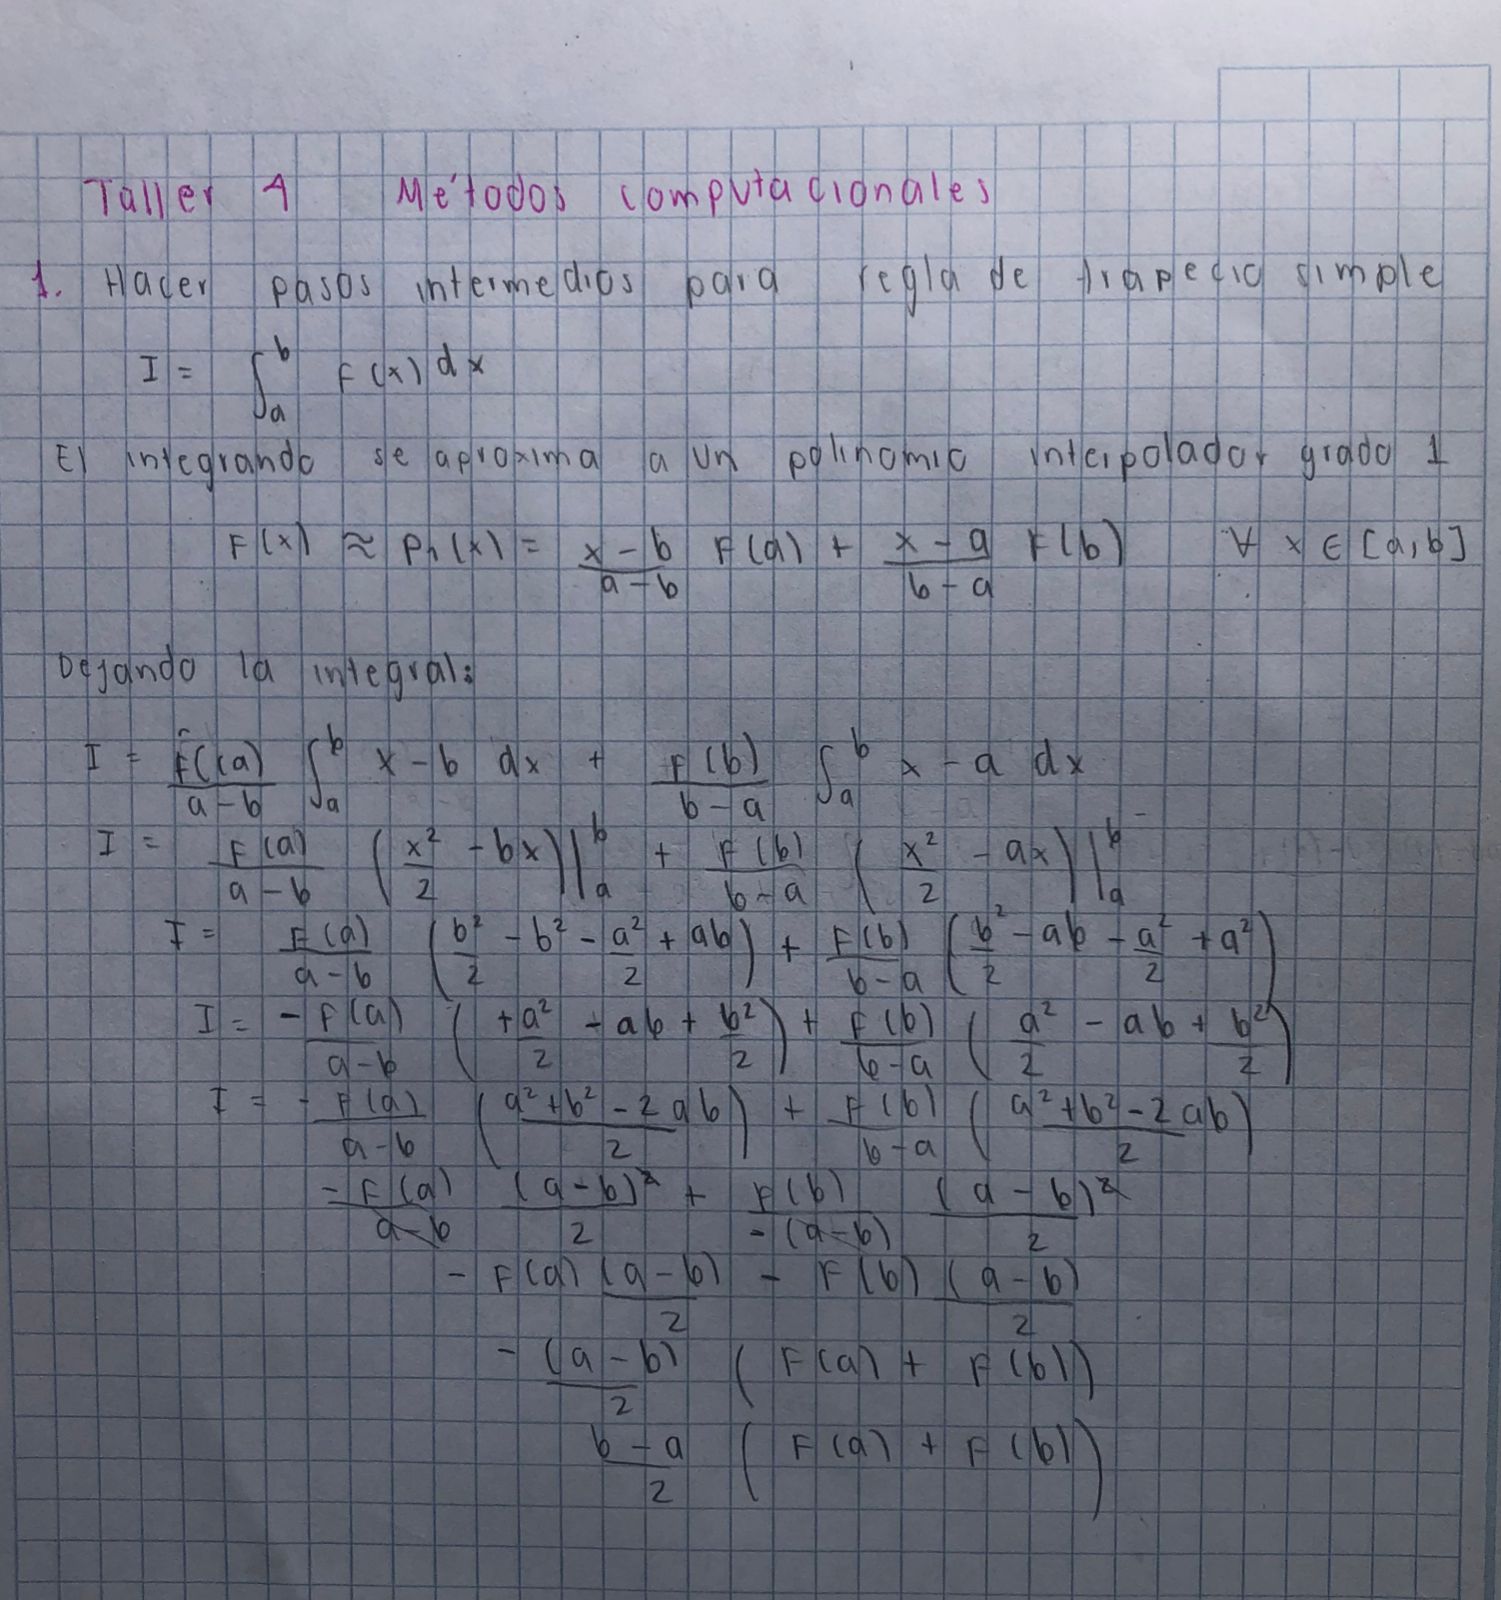 Taller 4 Métodos computacionales
1. Hacer pasos intermedios para regla de trapecio simple
I = ∫_a^b F(x) dx
El integrando se aproxima a un polinomio interpolador grado 1
F(x) ≈ Pn(x) = (x-b)/(a-b) F(a) + (x-a)/(b-a) F(b) ∀ x ∈ [a,b]
Dejando la integral:
I = F(a)/(a-b) ∫_a^b x-b dx + F(b)/(b-a) ∫_a^b x-a dx
I = F(a)/(a-b) (x²/2 - bx)|_a^b + F(b)/(b-a) (x²/2 - ax)|_a^b
I = F(a)/(a-b) (b²/2 - b² - a²/2 + ab) + F(b)/(b-a) (b²/2 - ab - a²/2 + a²)
I = -F(a)/(a-b) (+a²/2 - ab + b²/2) + F(b)/(b-a) (a²/2 - ab + b²/2)
I = -F(a)/(a-b) ((a²+b²-2ab)/2) + F(b)/(b-a) ((a²+b²-2ab)/2)
-F(a)/(a-b) (a-b)²/2 + F(b)/-(a-b) (a-b)²/2
-F(a) (a-b)/2 - F(b) (a-b)/2
-(a-b)/2 (F(a) + F(b))
(b-a)/2 (F(a) + F(b))